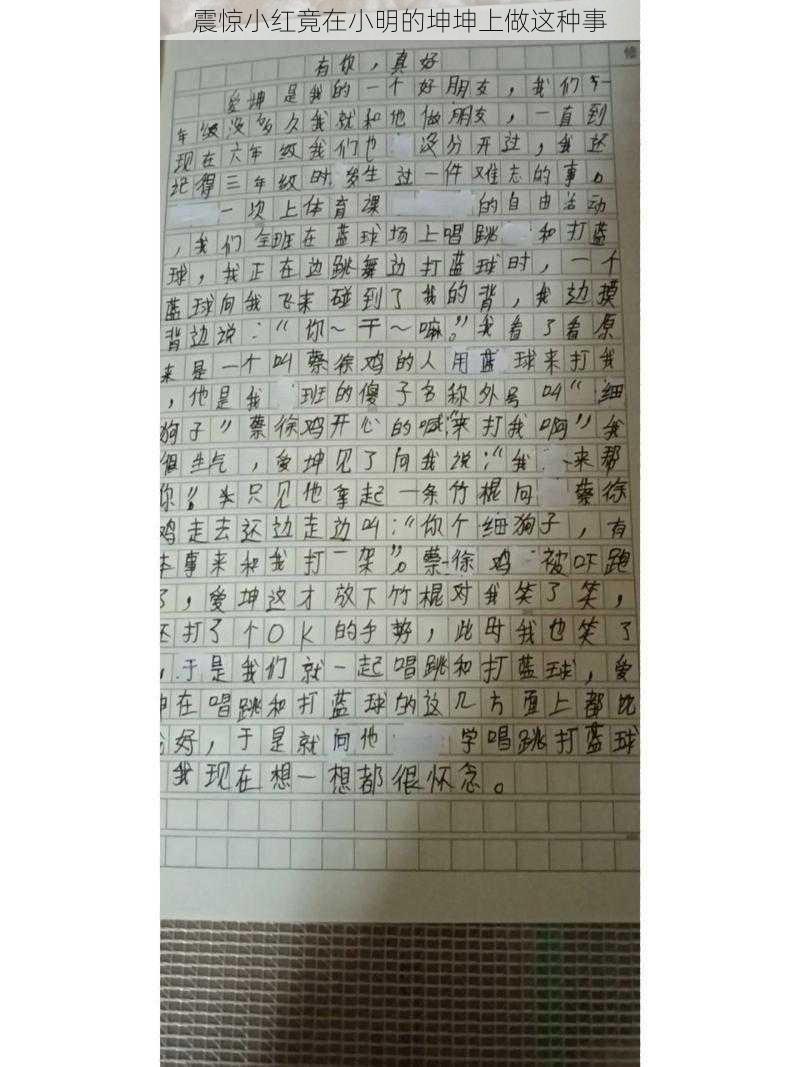 震惊小红竟在小明的坤坤上做这种事
有你，真好
爱坤是我的一个好朋友，我们一
年级没多久我就和他做朋友，一直到
现在六年级我们也没分开过，我还
记得三年级时发生过一件难忘的事。
一次上体育课的自由活动
，我们全班在蓝球场上唱跳和打蓝
球，我正在边跳舞边打蓝球时，一个
蓝球向我飞来碰到了我的背，我边摸
背边说：“你～干～嘛。”我看了看原
来是一个叫蔡徐鸡的人用蓝球来打我
，他是我班的傻子名称外号叫“细
狗子”蔡徐鸡开心的喊“来打我啊”我
很生气，爱坤见了向我说：“我来帮
你”。只见他拿起一条竹棍向蔡徐
鸡走去还边走边叫：“你个细狗子，有
本事来和我打一架”。蔡徐鸡被吓跑
了，爱坤这才放下竹棍对我笑了笑，
还打了个OK的手势，此时我也笑了
，于是我们就一起唱跳和打蓝球，爱
坤在唱跳和打蓝球的这几方面上都比
我好，于是就向他学唱跳打蓝球
我现在想一想都很怀念。